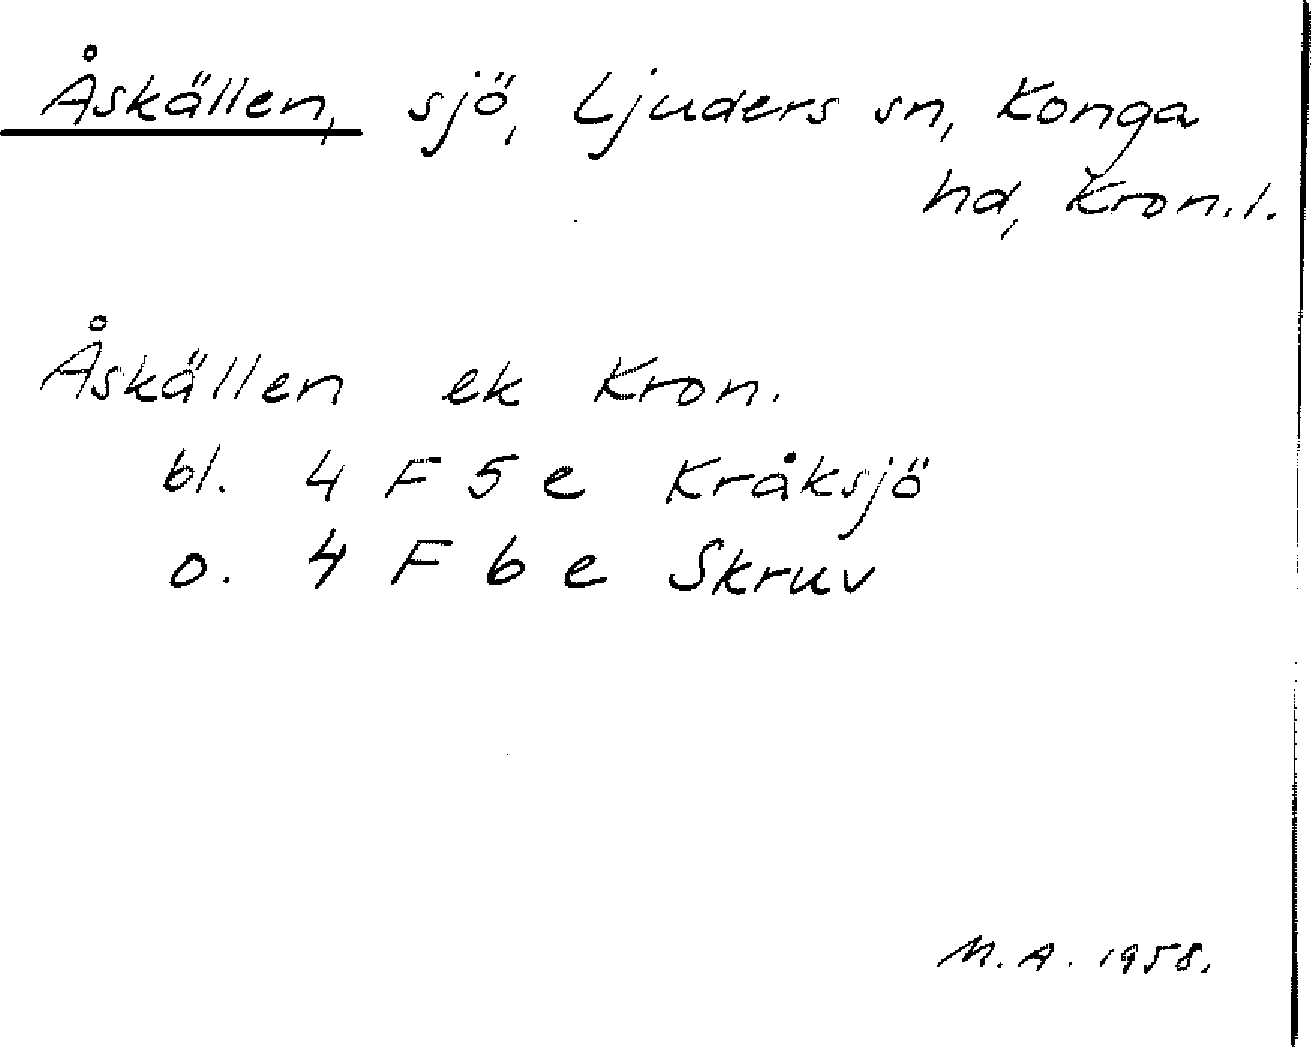 Åskällen, sjö, Ljuders sn, Konga
hd, Kron.l.
Åskällen ek Kron.
bl. 4 F 5 e Kråksjö
o. 4 F 6 e Skruv
M.A. 1958.